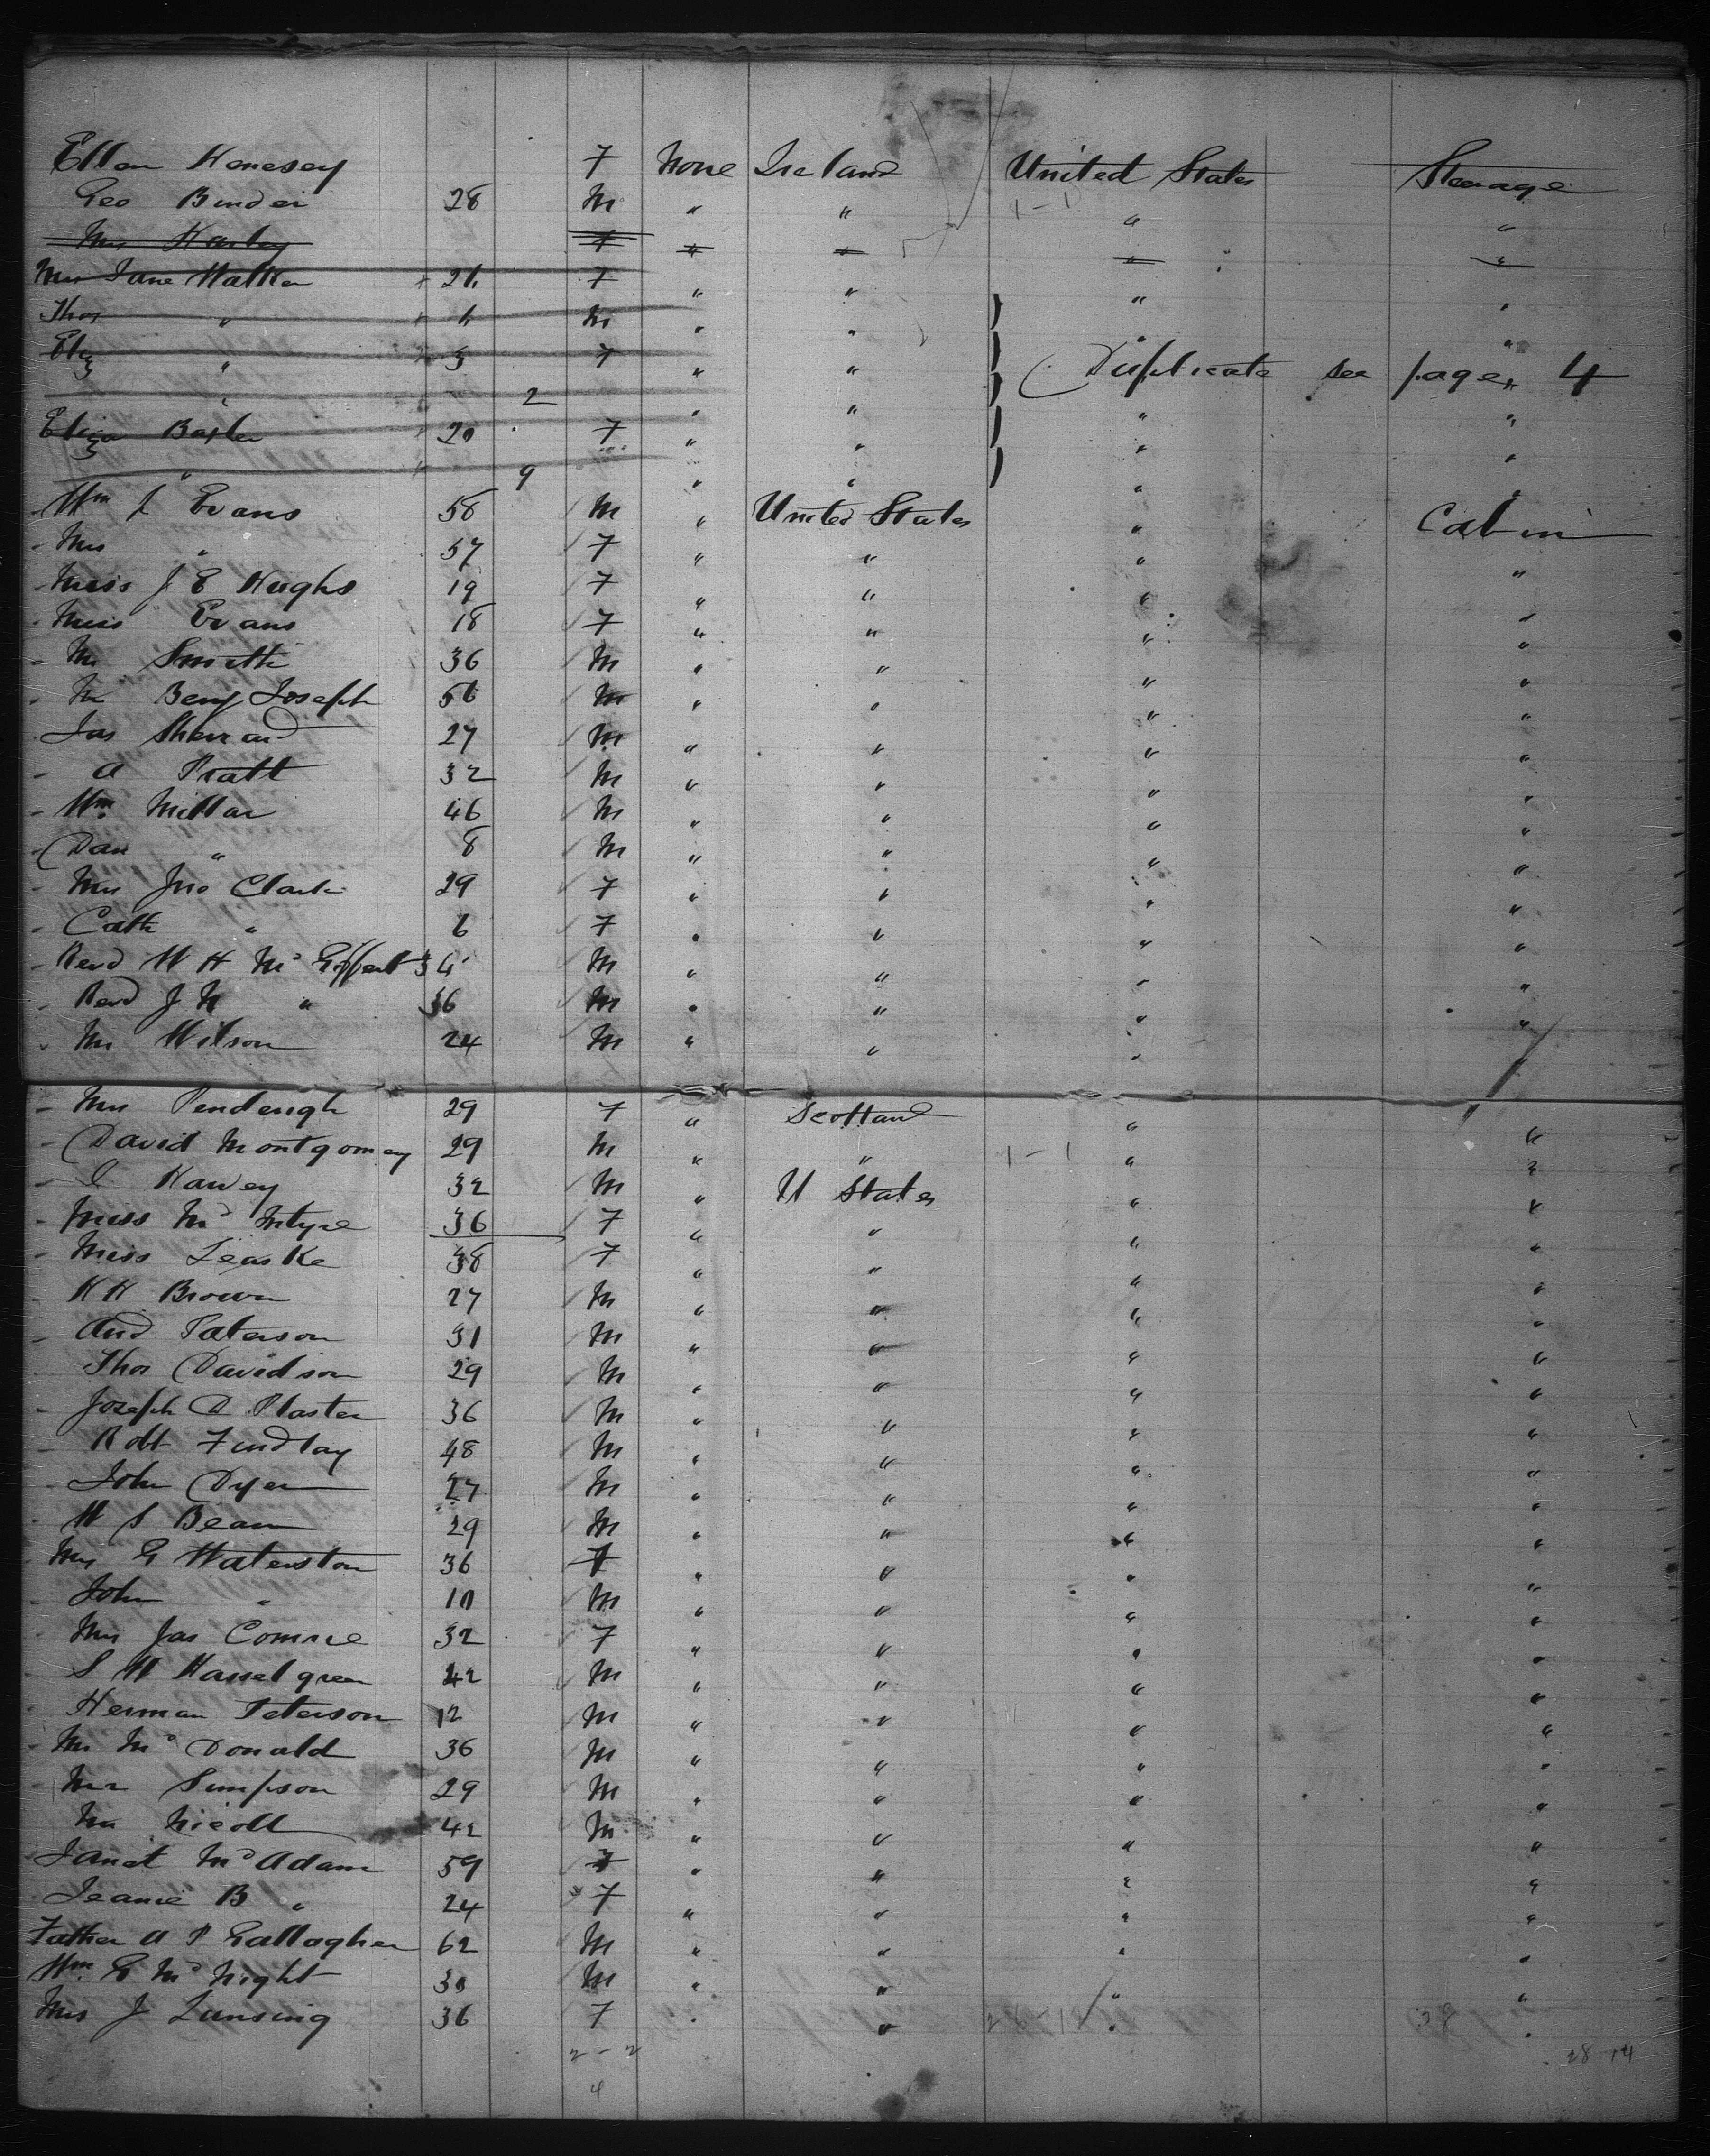 Ellen Henesey 7 None Ireland United States Steerage
Geo Binder 28 M " " 1-1 " "
Mrs Harley 7 " " " "
Mrs Jane Walker 26 7 " " " "
Thos " 6 M " " " "
Eliz " 3 7 " " (Duplicate see page 4
" 2 " " " "
Eliza Baxter 20 7 " " " "
" 9 " " " "
Wm J Evans 58 M " United States " Cabin
Mrs " 57 7 " " " "
Miss J E Hughs 19 7 " " " "
Miss Evans 18 7 " " " "
Mr Smith 36 M " " " "
Mr Benj Joseph 56 M " " " "
Jas Sherrard 27 M " " " "
A Pratt 32 M " " " "
Wm. Millar 46 M " " " "
Dan " 8 M " " " "
Mrs Jno Clark 29 7 " " " "
Cath " 6 7 " " " "
Revd W H Mc Giffert 34 M " " " "
Revd J N " 36 M " " " "
Mr Wilson 24 M " " " "
Mrs Pendergh 29 7 " Scotland " "
David Montgomey 29 M " " 1-1 " "
J Harvey 32 M " U States " "
Miss Mc Intyre 36 7 " " " "
Miss Leaske 38 7 " " " "
H H Brown 27 M " " " "
And Paterson 31 M " " " "
Thos Davidson 29 M " " " "
Joseph D Plaster 36 M " " " "
Robt Findlay 48 M " " " "
John Dyer 27 M " " " "
W S Bean 29 M " " " "
Mrs G Waterston 36 7 " " " "
John " 10 M " " " "
Mrs Jas Comrie 32 7 " " " "
S W Hasselgreen 42 M " " " "
Herman Peterson 12 M " " " "
Mr Mc Donald 36 M " " " "
Mr Simpson 29 M " " " "
Mr Nicoll 42 M " " " "
Janet Mc Adam 59 7 " " " "
Jeanie B " 24 7 " " " "
Father A P Gallagher 62 M " " " "
Wm. G Mc Night 30 M " " " "
Mrs J Lansing 36 7 " " " 38 "
2-2 28 14
4